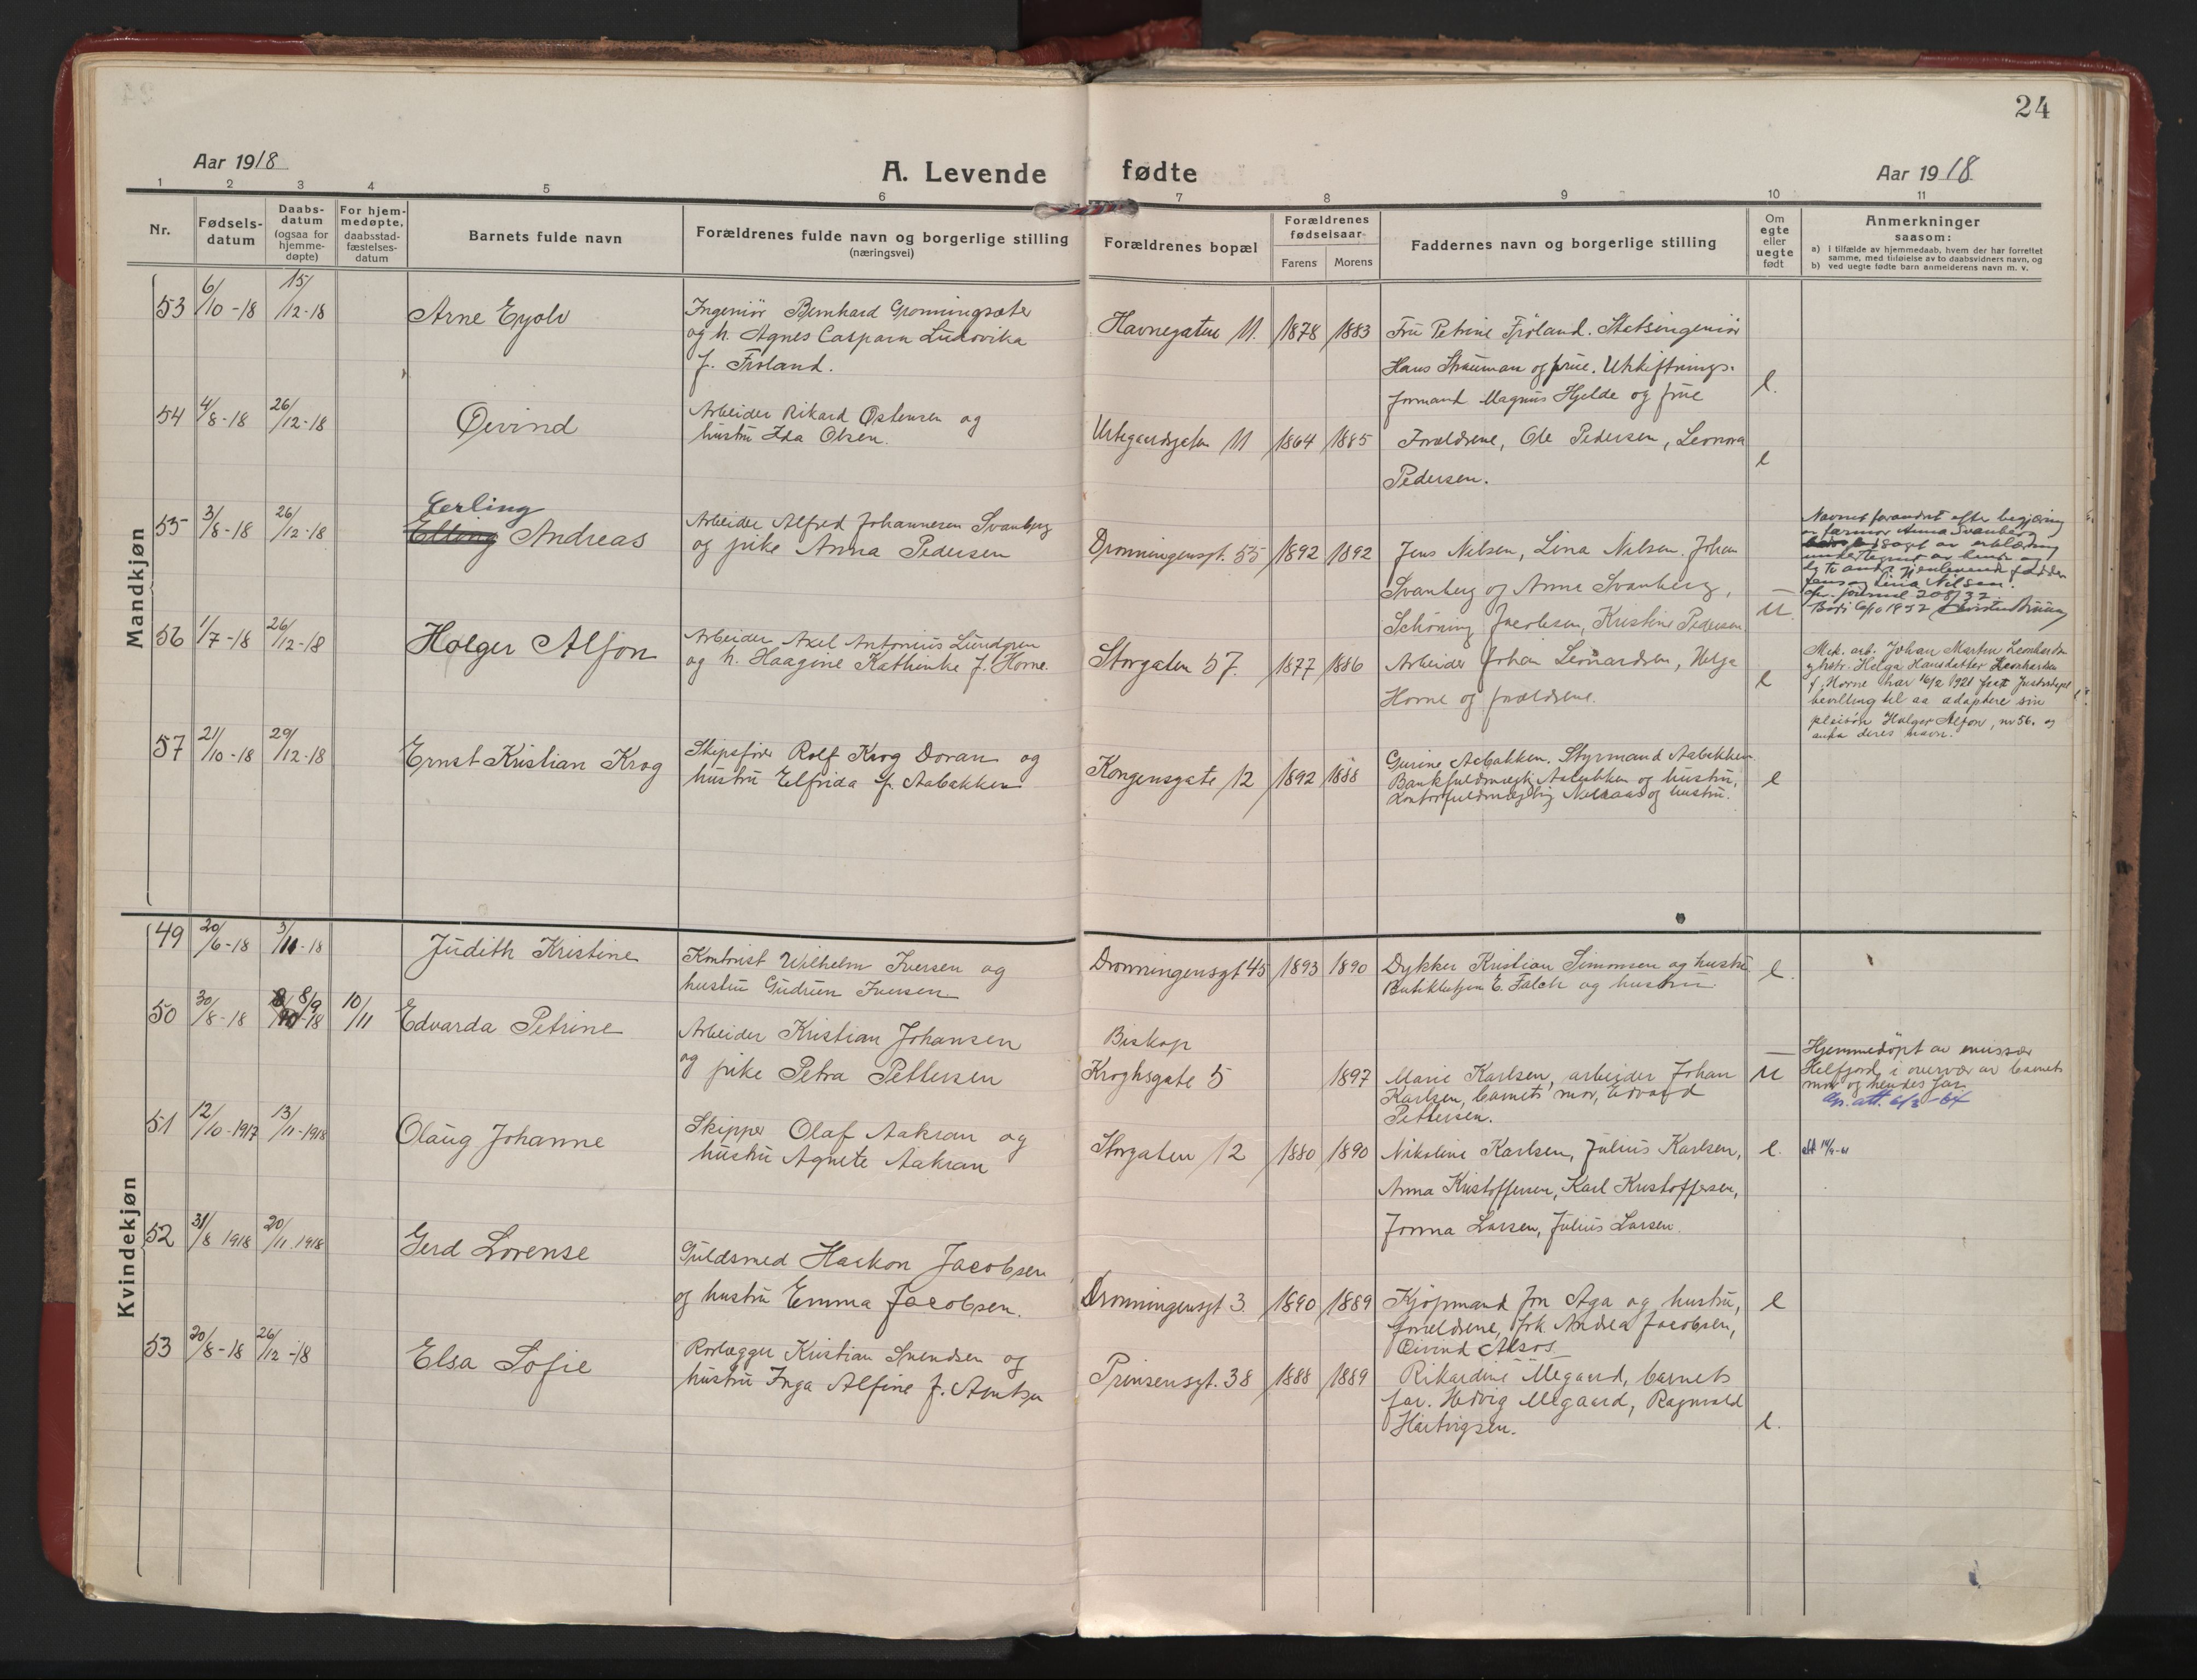 24
Aar 1918
A. Levende fødte
Aar 1918
1 2 3 4 5 6 7 8 9 10 11
Nr.
Fødsels-
datum
Daabs-
datum
(ogsaa for
hjemme-
døpte)
For hjem-
medøpte,
daabsstad-
fæstelses-
datum
Barnets fulde navn
Forældrenes fulde navn og borgerlige stilling
(næringsvei)
Forældrenes bopæl
Forældrenes
fødselsaar
Farens Morens
Faddernes navn og borgerlige stilling
Om
egte
eller
uegte
født
Anmerkninger
saasom:
a) i tilfælde av hjemmedaab, hvem der har forrettet
samme, med tilføielse av to daabsvidners navn, og
b) ved uegte fødte barn anmelderens navn m. v.
Mandkjøn
53 6/10-18 15/12-18 Arne Eyolv
Ingeniør Bernhard Grønningsæter
og h. Agnes Caspara Ludovika
f. Frøland.
Havnegaten 11. 1878 1883
Fru Petrine Frøland. Statsingeniør
Hans Skauman og frue. Utskiftnings-
formand Magnus Hjelde og frue
e.
54 4/8-18 26/12-18 Øivind
Arbeider Rikard Østensen og
hustru Ida Olsen.
Urtegaardsgaten 11 1864 1885
Forældrene, Ole Pedersen, Leonora
Pedersen.
e
55 3/8-18 26/12-18
Gerling
Elling Andreas
Arbeider Alfred Johannesen Svanberg
og pike Anna Pedersen
Dronningensgt. 55 1892 1892
Jens Nilsen, Lina Nilsen. Johan
Svanberg og Anne Svanberg,
Schøning Jacobsen, Kristine Pedersen
u.
Navnet forandret efter begjæring
av farmor Anna Svanberg
av erklæring
undertegnet av hende og
de to andre gjenlevende faddere
Jens og Lina Nilsen.
journal 208/32.
56 1/7-18 26/12-18 Holger Alfon
Arbeider Axel Antonius Lundgren
og h. Haagine Kathinka f. Horne.
Storgaten 57. 1877 1886
Arbeider Johan Leonardsen, Helga
Horne og forældrene.
e
Mek. arb. Johan Martin Leonhardsen
og hstr. Helga Hansdatter Leonhardsen
f. Horne har 16/2 1921 faat Justisdepts
bevilling til aa adoptere sin
pleisøn Holger Alfon, nr 56. og
anta deres navn.
57 21/10-18 29/12-18 Ernst Kristian Krog
Skipsfører Rolf Krog Doran og
hustru Elfrida f. Aabakken
Kongensgate 12 1892 1888
Gurine Aabakken. Styrmand Aabakken.
Bankfuldmegtig Aabakken og hustru,
Kontorfuldmægtig og hustru.
e
Kvindekjøn
49 20/6-18 3/11-18 Judith Kristine
Kontorist Wilhelm Iversen og
hustru Gudrun Iversen
Dronningensgt 45 1893 1890
Dykker Kristian Simonsen og hustru
E. Falch og hustru.
e.
50 30/8-18 8/9 -18 10/11 Edvarda Petrine
Arbeider Kristian Johansen
og pike Petra Pettersen
Biskop
Kroghsgate 5 1897
Marie Karlsen, arbeider Johan
Karlsen, barnets mor, Edvard
Pettersen.
u
Hjemmedøpt av emissær
Helfjord i overvær av barnets
mor og hendes far
att. 6/3-64
51 12/10-1917 13/11-1918 Olaug Johanne
Skipper Olaf Aakran og
hustru Agnete Aakran
Storgaten 12 1880 1890
Nikoline Karlsen, Julius Karlsen,
Anna Kristoffersen, Karl Kristoffersen,
Jonna Larsen, Julius Larsen.
e.
att 14/9-61
52 31/8 1918 20/11 1918 Gerd Lorense
Guldsmed Haakon Jacobsen
og hustru Emma Jacobsen.
Dronningensgt 3. 1890 1889
Kjøpmand Jon Aga og hustru,
forældrene, frk. Andrea Jacobsen,
Øivind Alsos
e
53 20/8-18 26/12-18 Elsa Sofie
Rørlægger Kristian Svendsen og
hustru Inga Alfine f. Arntsen
Prinsensgt. 38 1888 1889
Rikardine Megaard, barnets
far. Hedvig Megaard, Ragnvald
Hartvigsen.
e.